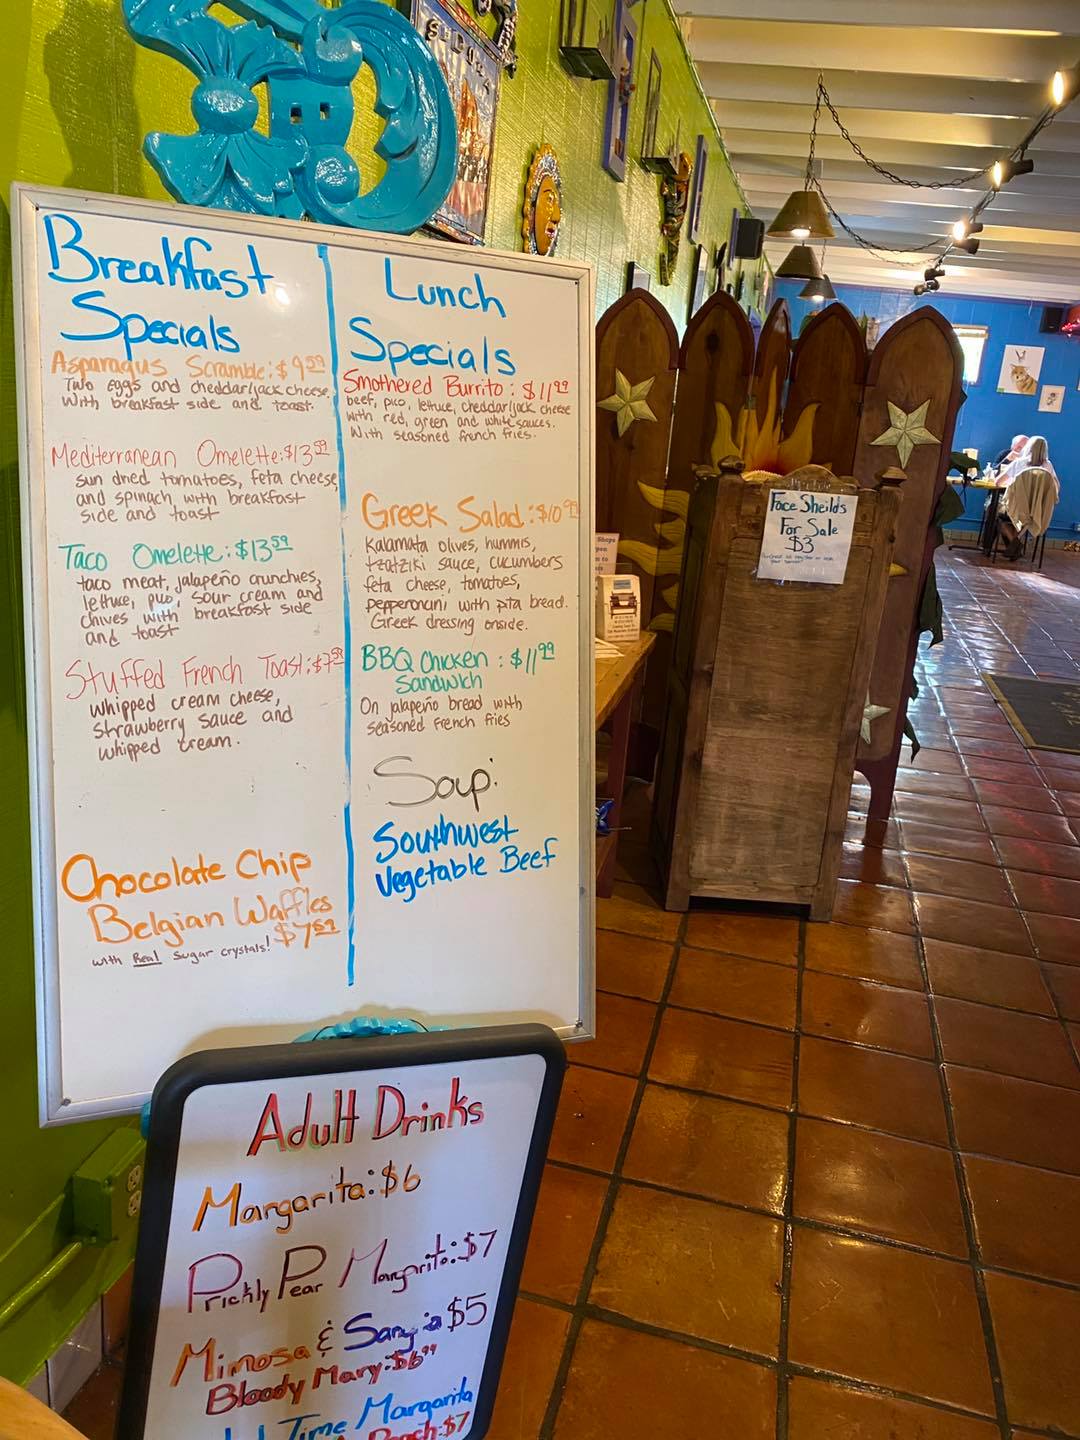 Breakfast
Specials
Asparagus Scramble: $9.59
Two eggs and cheddar/jack cheese,
With breakfast side and toast.
Mediterranean Omelette: $13.59
sun dried tomatoes, feta cheese,
and spinach with breakfast
side and toast
Taco Omelette: $13.59
taco meat, jalapeño crunchies,
lettuce, pico, sour cream and
chives with breakfast side
and toast
Stuffed French Toast: $7.59
whipped cream cheese,
strawberry sauce and
whipped cream.
Chocolate Chip
Belgian Waffles
$7.59
with Real sugar crystals!
Lunch
Specials
Smothered Burrito: $11.99
beef, pico, lettuce, cheddar/jack cheese
with red, green and white sauces.
With seasoned french fries.
Greek Salad: $10.99
Kalamata olives, hummis,
tzatziki sauce, cucumbers
feta cheese, tomatoes,
pepperoncini with pita bread.
Greek dressing onside.
BBQ Chicken: $11.99
Sandwich
On jalapeño bread with
seasoned french fries
Soup:
Southwest
Vegetable Beef
Adult Drinks
Margarita: $6
Prickly Pear Margarita: $7
Mimosa & Sangria $5
Bloody Mary: $6.99
Time Margarita
Peach: $7
Face Sheilds
For Sale
$3